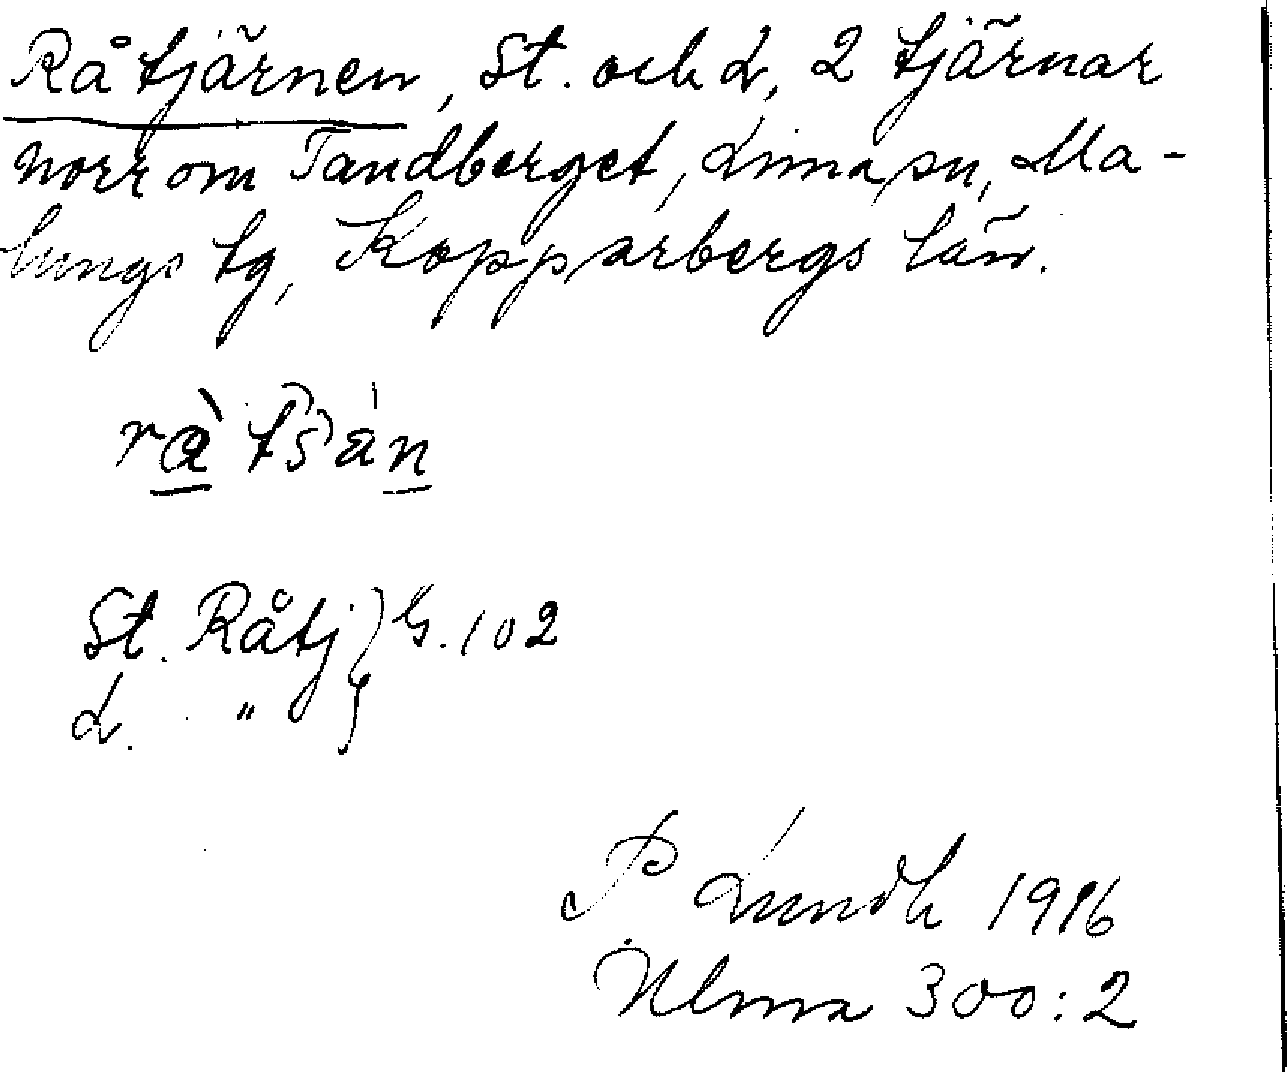 Råtjärnen, St. och L, 2 tjärnar
norr om Tandberget, Lima sn, Ma-
lungs tg, Kopparbergs län.
St. Råtj } G. 102
L. " }
P Lundh 1916
Ulma 300:2